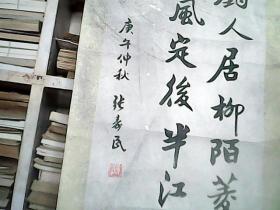 人居柳陌
風定後半江
庚午仲秋 張壽民